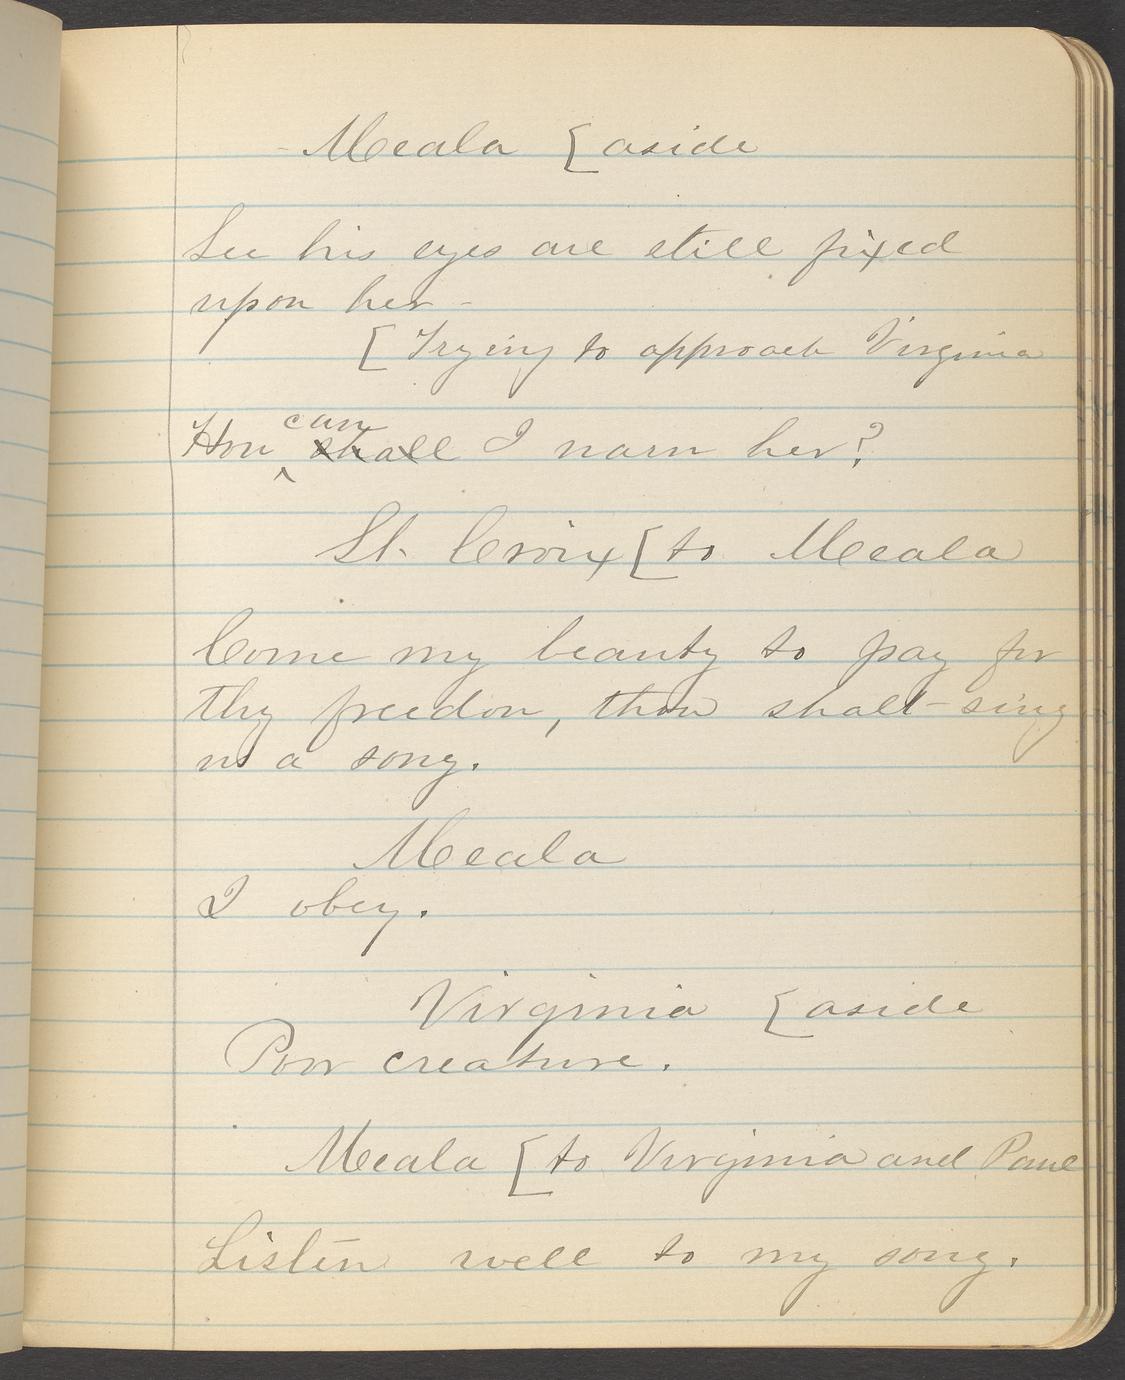 - Meala [aside
See his eyes are still fixed
upon her -
[Trying to approach Virginia
can
How shall I warn her?
St. Croix [to Meala
Come my beauty to pay for
thy freedom, thou shalt sing
us a song.
Meala
I obey.
Virginia [aside
Poor creature.
Meala [to Virginia and Paul
Listen well to my song.